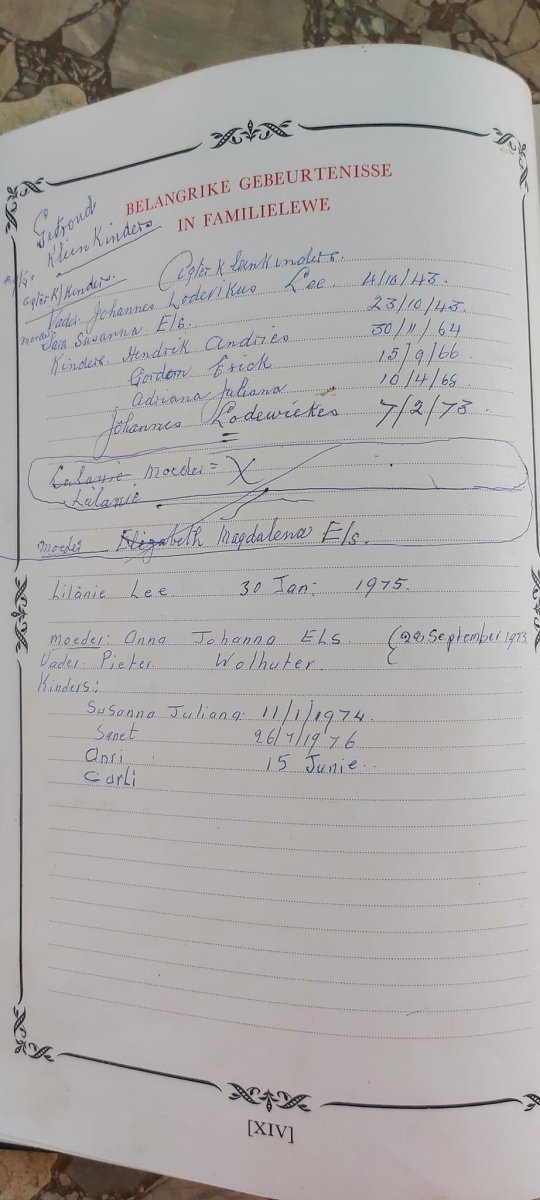 BELANGRIKE GEBEURTENISSE
IN FAMILIELEWE
Getroud
Klein Kinders
agter K/Kinders.
Agter Kleinkinders.
Vader: Johannes Loderikus Lee 4/10/43.
moeder Susanna Els. 23/10/43.
Kinders. Hendrik Andries 30/11/64
Gordon Erick 15/9/66
Adriana Juliana 10/4/68
Johannes Lodewickes 7/2/73.
Lilanie Moeder = X
Lilanie
moeder Elizabeth Magdalena Els.
Lilanie Lee. 30 Jan: 1975.
moeder: Anna Johanna ELS (22 September 1973
Vader. Pieter Wolhuter (
Kinders:
Susanna Juliana. 11/1/1974.
Sanet 26/7/1976
Anri 15 Junie.
Carli
[XIV]